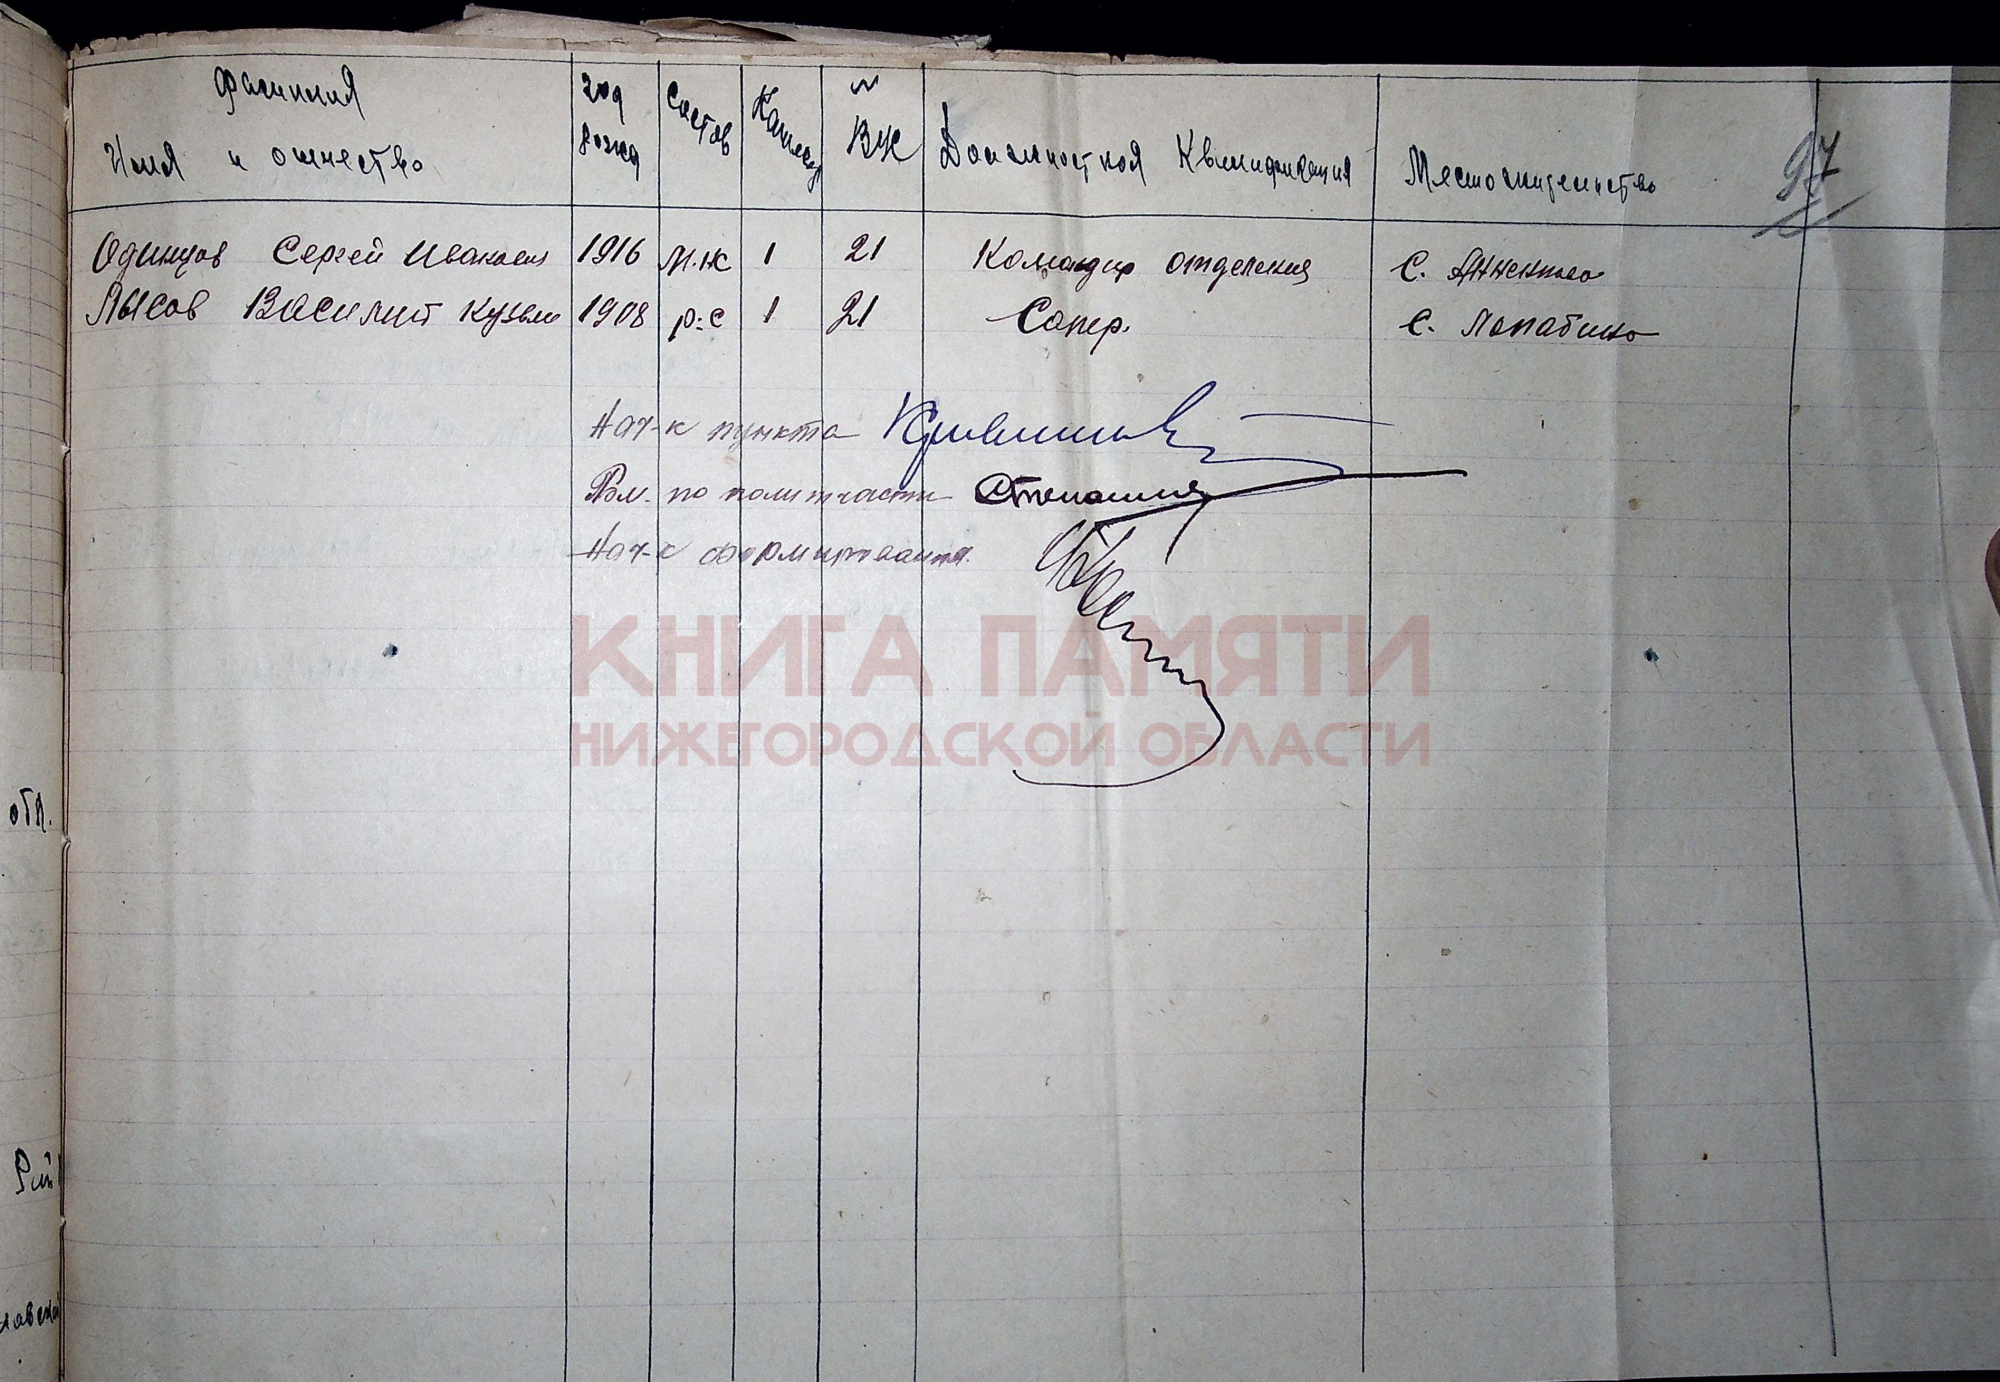 Фамилия
Имя и отчество
год рожд
Состав
Категор
№ ВУС
Должностная Квалификация
Местожительство
97
Одинцов Сергей Иванович 1916 м.н.с 1 21 Командир отделения С. Анненково
Лысов Василий Кузьм 1908 р.с 1 21 Сапер. С. Лопатино
Нач-к пункта
Зам. по политчасти
Нач-к формирования.
КНИГА ПАМЯТИ
НИЖЕГОРОДСКОЙ ОБЛАСТИ
отд.